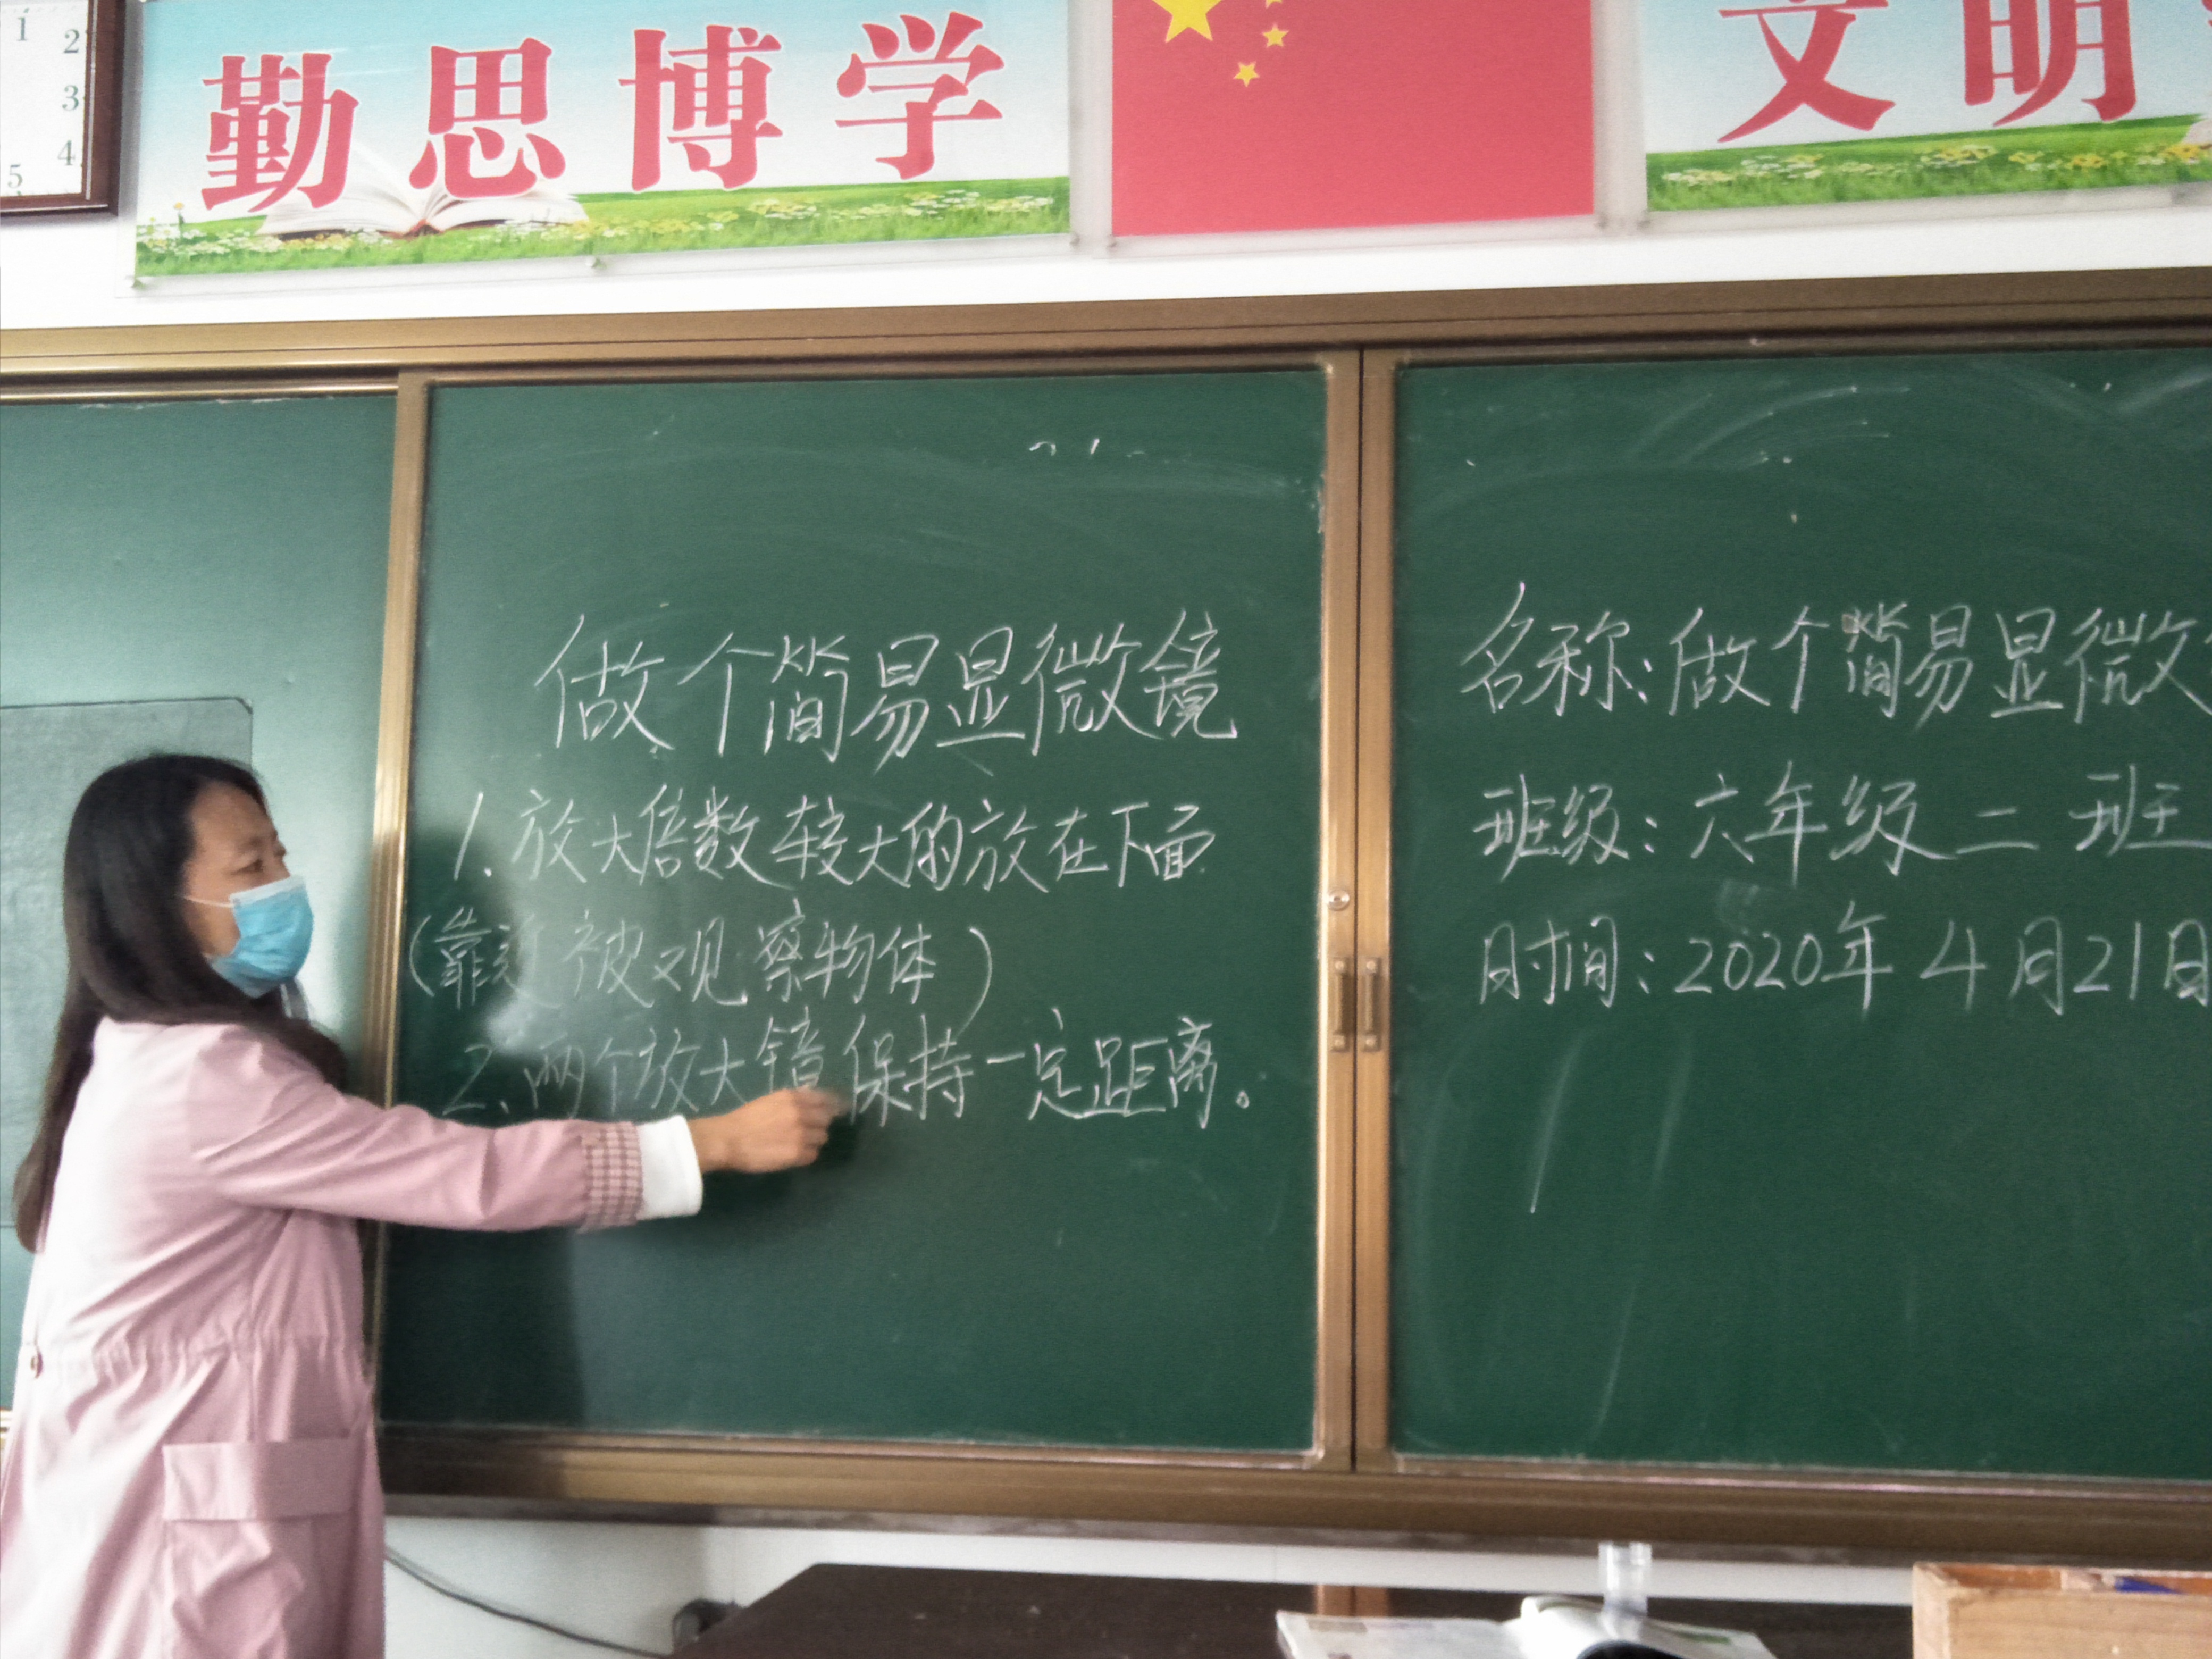 1
2
3
4
5
勤思博学
文明
做个简易显微镜
1.放大倍数较大的放在下面
(靠近被观察物体)
2.两个放大镜保持一定距离。
名称:做个简易显微
班级:六年级二班
时间:2020年4月21日